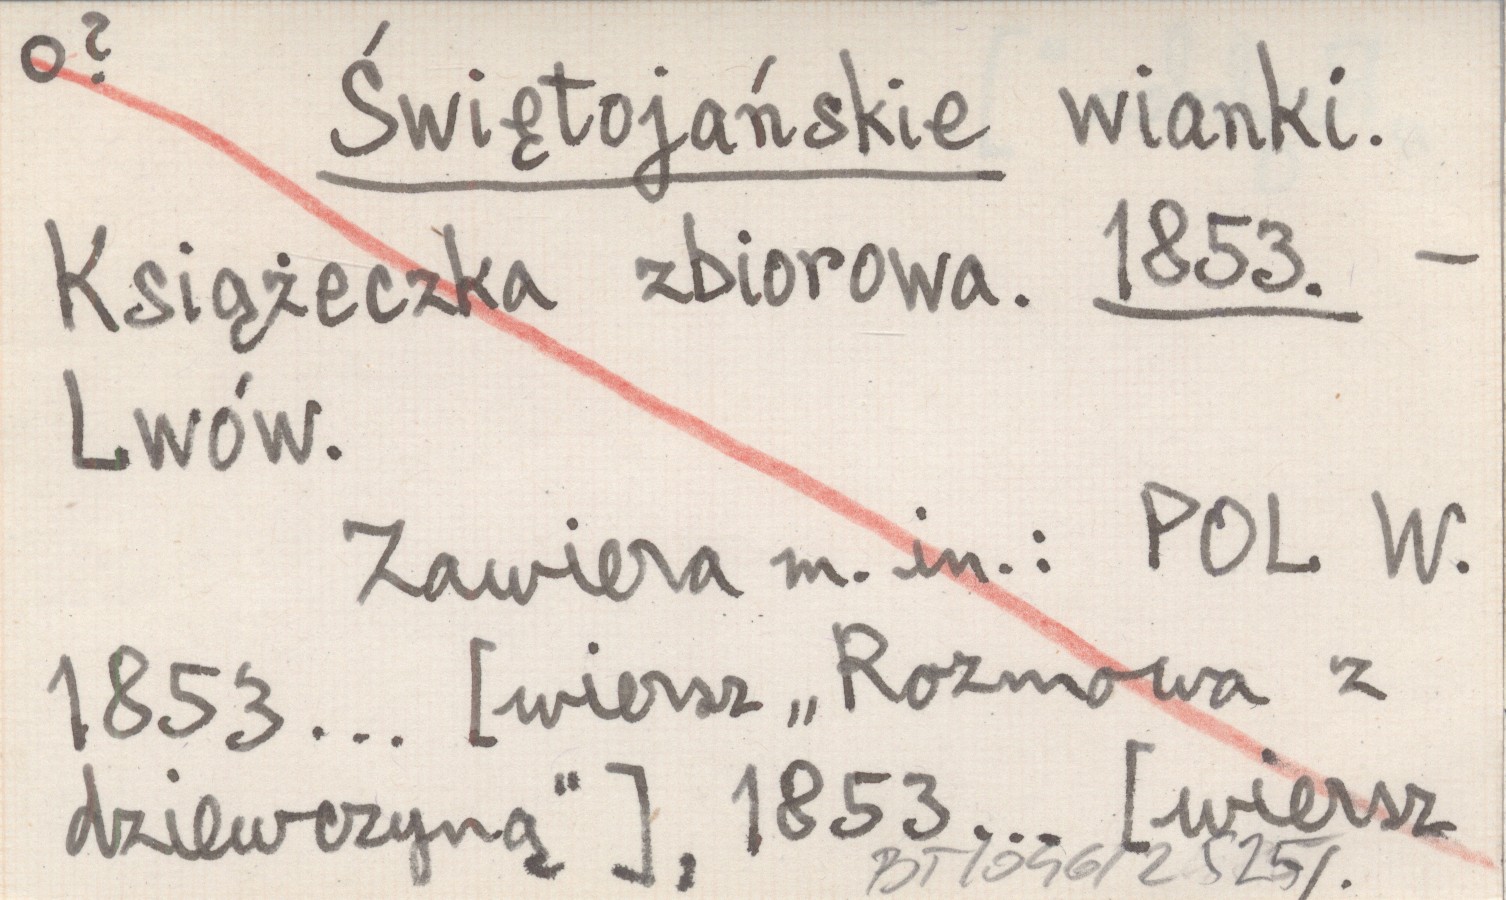 o?
Świętojańskie wianki.
Książeczka zbiorowa. 1853. –
Lwów.
Zawiera m. in.: POL W.
1853... [wiersz „Rozmowa z
dziewczyną”], 1853... [wiersz